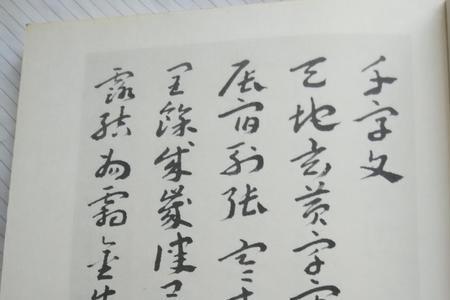 千字文
天地玄黃宇宙
辰宿列張寒來
閏餘成歲律呂
露結為霜金生